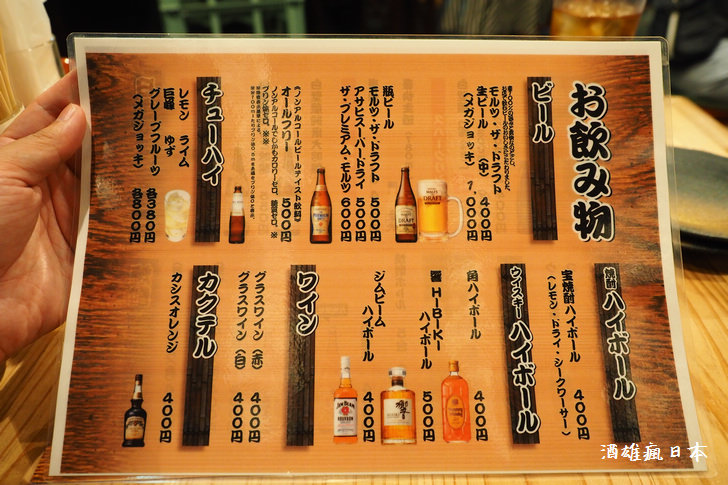 お飲み物
ビール
モルツ・ザ・ドラフト
生ビール(中) 400円
(メガジョッキ) 1,000円
瓶ビール
モルツ・ザ・ドラフト 500円
アサヒスーパードライ 500円
ザ・プレミアム・モルツ 600円
(ノンアルコールビールテイスト飲料)
オールフリー 500円
ノンアルコールでしかもカロリーゼロ、糖質ゼロ。※
プリン体ゼロ。※
チューハイ
レモン ライム
巨峰 ゆず
グレープフルーツ 各380円
(メガジョッキ) 各800円
焼酎ハイボール
宝焼酎ハイボール 400円
(レモン・ドライ・シークワーサー)
ウィスキーハイボール
角ハイボール 400円
響 HIBIKI
ハイボール 500円
ジムビーム
ハイボール 400円
ワイン
グラスワイン(赤) 400円
グラスワイン(白) 400円
カクテル
カシスオレンジ 400円
DRAFT
DRAFT
JIM BEAM
BOURBON
響
酒雄瘋日本